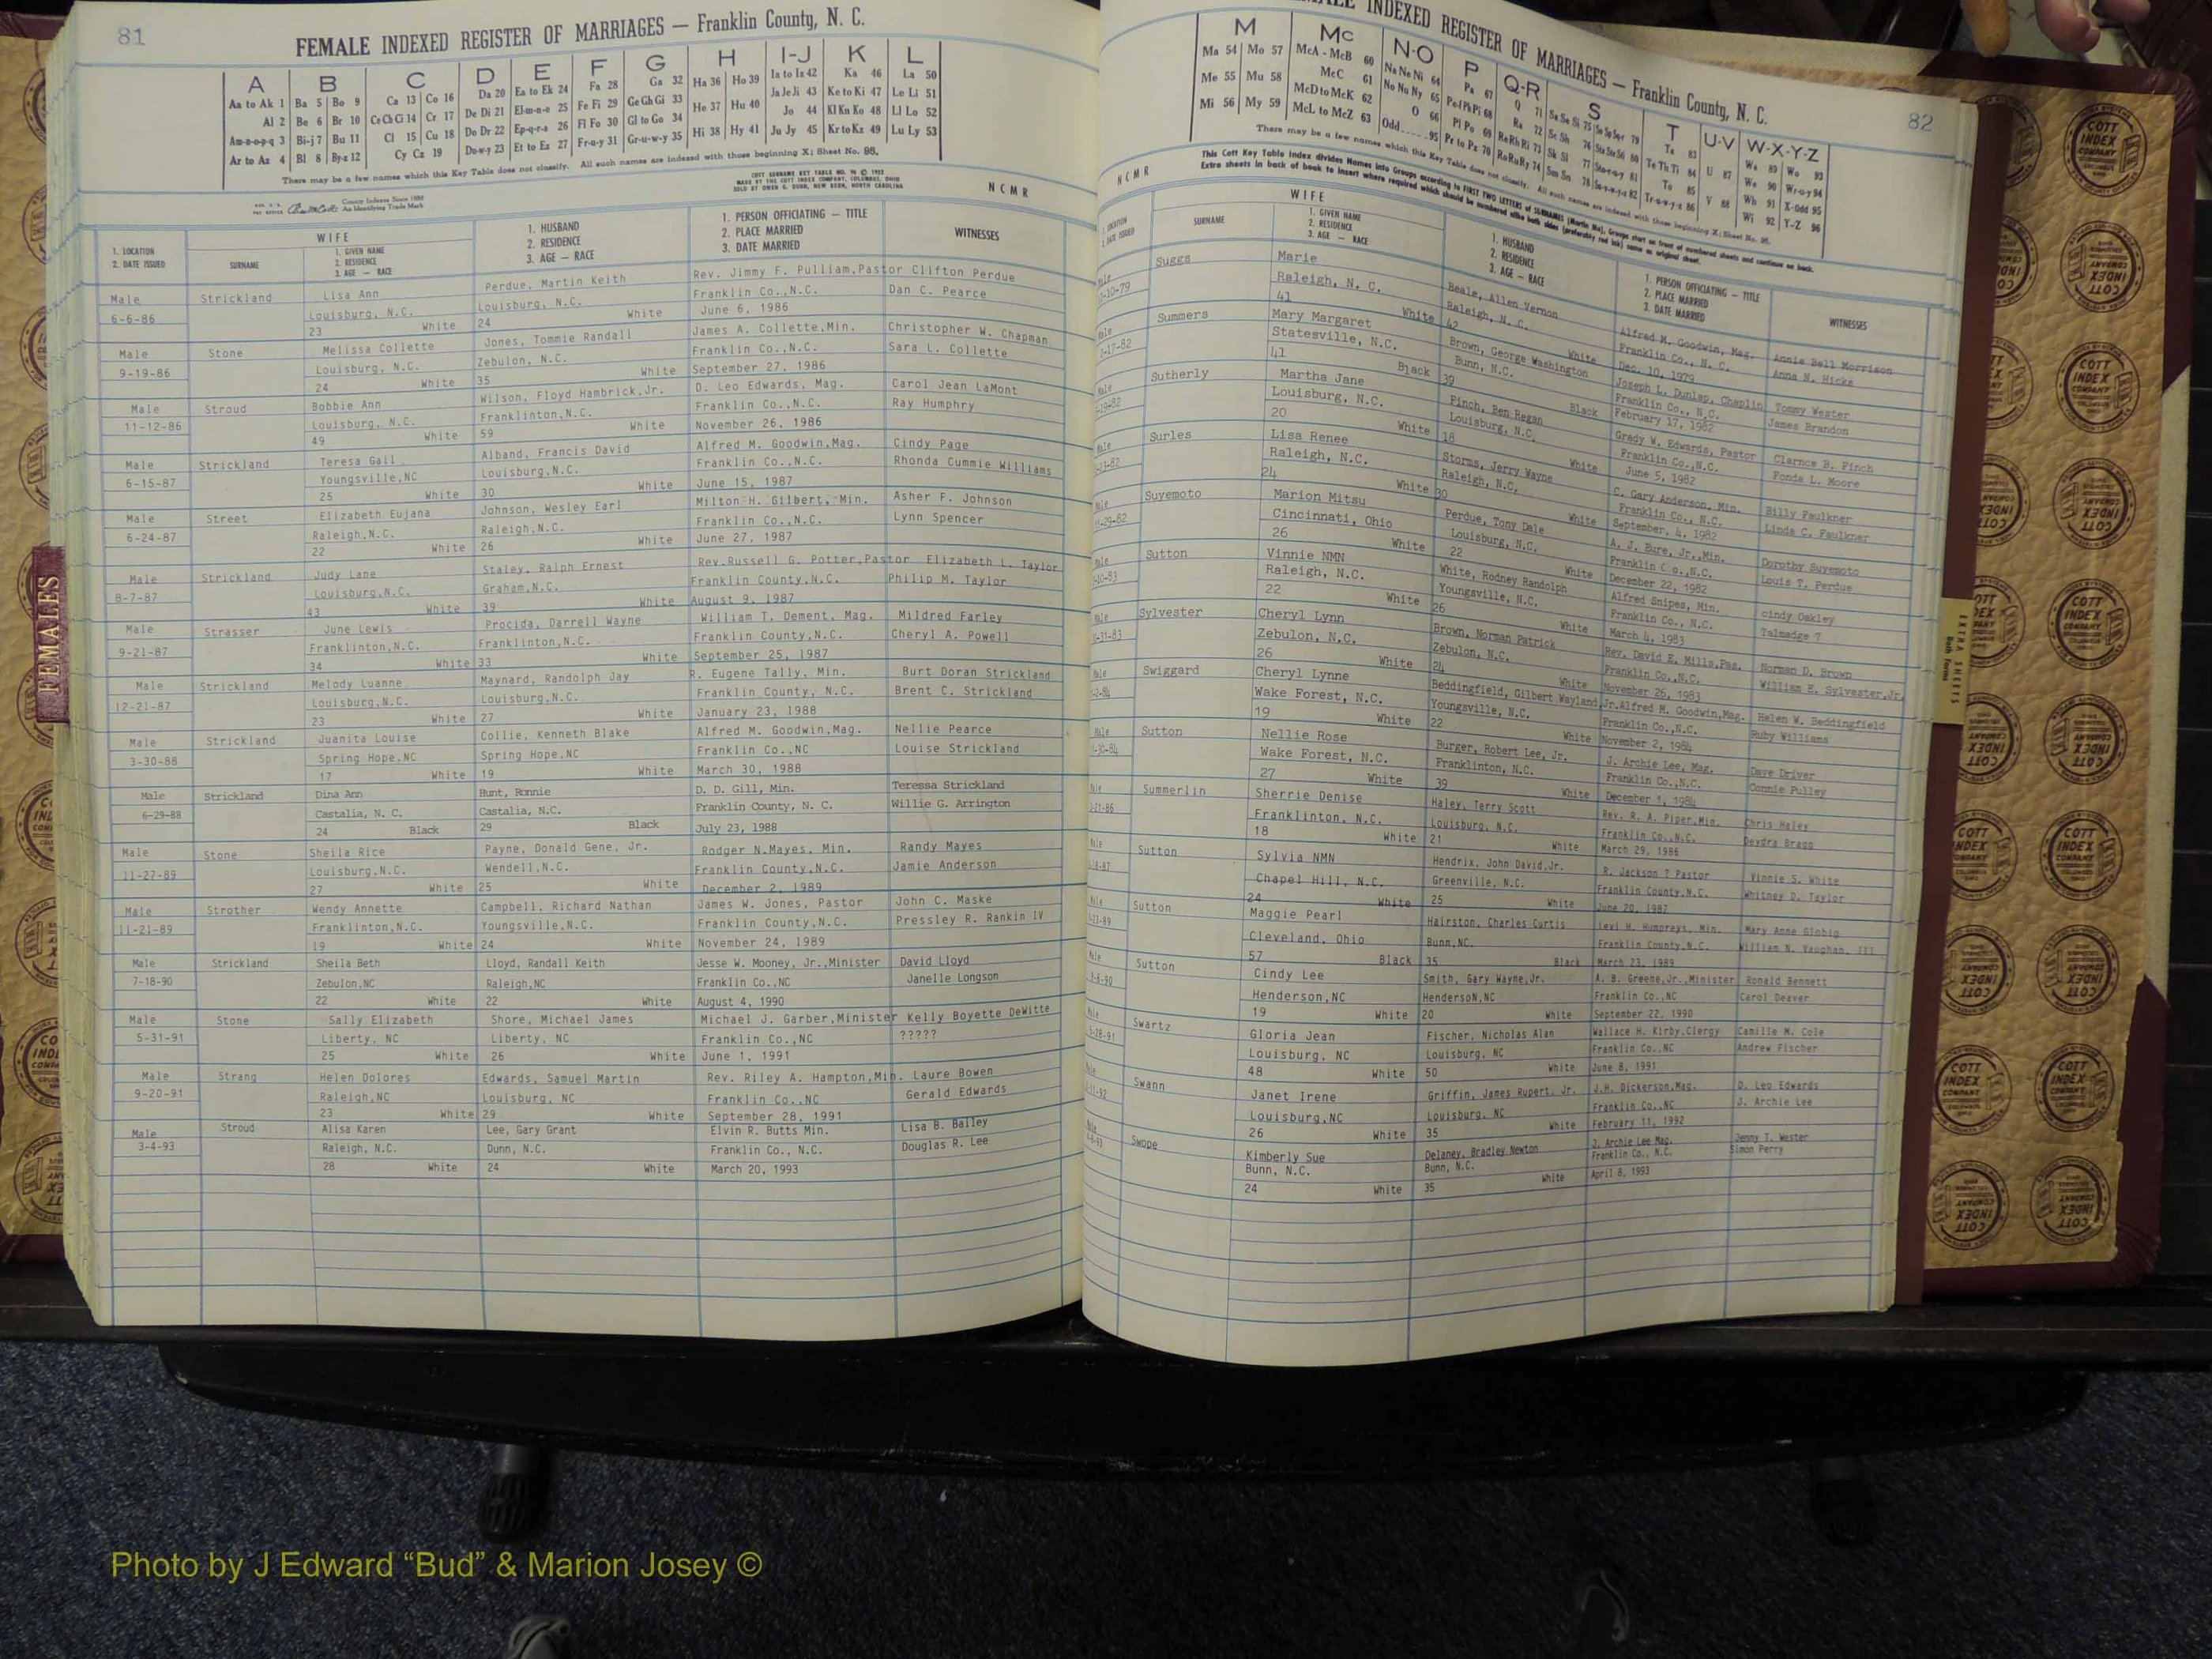 81
FEMALE INDEXED REGISTER OF MARRIAGES — Franklin County, N. C.
A B C D E F G H I-J K L
Aa to Ak 1 Ba 5 Bo 9 Ca 13 Co 16 Da 20 Ea to Ek 24 Fa 28 Ga 32 Ha 36 Ho 39 Ia to Iz 42 Ka 46 La 50
Al 2 Be 6 Br 10 Ce Ch Ci 14 Cr 17 De Di 21 El-m-n-o 25 Fe Fi 29 Ge Gh Gi 33 He 37 Hu 40 Ja Je Ji 43 Ke to Ki 47 Le Li 51
Am-n-o-p-q 3 Bi-j 7 Bu 11 Cl 15 Cu 18 Do Dr 22 Ep-q-r-s 26 Fl Fo 30 Gl to Go 34 Hi 38 Hy 41 Jo 44 Kl Kn Ko 48 Ll Lo 52
Ar to Az 4 Bl 8 By-z 12 Cy Cz 19 Du-w-y 23 Et to Ez 27 Fr-u-y 31 Gr-u-w-y 35 Ju Jy 45 Kr to Kz 49 Lu Ly 53
There may be a few names which this Key Table does not classify. All such names are indexed with those beginning X; Sheet No. 95.
County Indexes Since 1888
An Identifying Trade Mark
COTT SURNAME KEY TABLE NO. 96 © 1952
MADE BY THE COTT INDEX COMPANY, COLUMBUS, OHIO
SOLD BY OWEN G. DUNN, NEW BERN, NORTH CAROLINA
N C M R
1. LOCATION
2. DATE ISSUED
WIFE
SURNAME
1. GIVEN NAME
2. RESIDENCE
3. AGE — RACE
1. HUSBAND
2. RESIDENCE
3. AGE — RACE
1. PERSON OFFICIATING — TITLE
2. PLACE MARRIED
3. DATE MARRIED
WITNESSES
Male Strickland Lisa Ann Perdue, Martin Keith Rev. Jimmy F. Pulliam,Pastor Clifton Perdue
6-6-86 Louisburg, N.C. Louisburg, N.C. Franklin Co.,N.C. Dan C. Pearce
23 White 24 White June 6, 1986
Male Stone Melissa Collette Jones, Tommie Randall James A. Collette,Min. Christopher W. Chapman
9-19-86 Louisburg, N.C. Zebulon, N.C. Franklin Co.,N.C. Sara L. Collette
24 White 35 White September 27, 1986
Male Stroud Bobbie Ann Wilson, Floyd Hambrick,Jr. D. Leo Edwards, Mag. Carol Jean LaMont
11-12-86 Louisburg, N.C. Franklinton,N.C. Franklin Co.,N.C. Ray Humphry
49 White 59 White November 26, 1986
Male Strickland Teresa Gail Alband, Francis David Alfred M. Goodwin,Mag. Cindy Page
6-15-87 Youngsville,NC Louisburg,N.C. Franklin Co.,N.C. Rhonda Cummie Williams
25 White 30 White June 15, 1987
Male Street Elizabeth Eujana Johnson, Wesley Earl Milton H. Gilbert, Min. Asher F. Johnson
6-24-87 Raleigh,N.C. Raleigh,N.C. Franklin Co.,N.C. Lynn Spencer
22 White 26 White June 27, 1987
Male Strickland Judy Lane Staley, Ralph Ernest Rev.Russell G. Potter,Pastor Elizabeth L. Taylor
8-7-87 Louisburg,N.C. Graham,N.C. Franklin County,N.C. Philip M. Taylor
43 White 39 White August 9, 1987
Male Strasser June Lewis Procida, Darrell Wayne William T. Dement, Mag. Mildred Farley
9-21-87 Franklinton,N.C. Franklinton,N.C. Franklin County,N.C. Cheryl A. Powell
34 White 33 White September 25, 1987
Male Strickland Melody Luanne Maynard, Randolph Jay R. Eugene Tally, Min. Burt Doran Strickland
12-21-87 Louisburg,N.C. Louisburg,N.C. Franklin County, N.C. Brent C. Strickland
23 White 27 White January 23, 1988
Male Strickland Juanita Louise Collie, Kenneth Blake Alfred M. Goodwin,Mag. Nellie Pearce
3-30-88 Spring Hope,NC Spring Hope,NC Franklin Co.,NC Louise Strickland
17 White 19 White March 30, 1988
Male Strickland Dina Ann Hunt, Ronnie D. D. Gill, Min. Teressa Strickland
6-29-88 Castalia, N. C. Castalia, N.C. Franklin County, N. C. Willie G. Arrington
24 Black 29 Black July 23, 1988
Male Stone Sheila Rice Payne, Donald Gene, Jr. Rodger N.Mayes, Min. Randy Mayes
11-27-89 Louisburg,N.C. Wendell,N.C. Franklin County,N.C. Jamie Anderson
27 White 25 White December 2, 1989
Male Strother Wendy Annette Campbell, Richard Nathan James W. Jones, Pastor John C. Maske
11-21-89 Franklinton,N.C. Youngsville,N.C. Franklin County,N.C. Pressley R. Rankin IV
19 White 24 White November 24, 1989
Male Strickland Sheila Beth Lloyd, Randall Keith Jesse W. Mooney, Jr.,Minister David Lloyd
7-18-90 Zebulon,NC Raleigh,NC Franklin Co.,NC Janelle Longson
22 White 22 White August 4, 1990
Male Stone Sally Elizabeth Shore, Michael James Michael J. Garber,Minister Kelly Boyette DeWitte
5-31-91 Liberty, NC Liberty, NC Franklin Co.,NC ?????
25 White 26 White June 1, 1991
Male Strang Helen Dolores Edwards, Samuel Martin Rev. Riley A. Hampton,Min. Laure Bowen
9-20-91 Raleigh,NC Louisburg, NC Franklin Co.,NC Gerald Edwards
23 White 29 White September 28, 1991
Male Stroud Alisa Karen Lee, Gary Grant Elvin R. Butts Min. Lisa B. Bailey
3-4-93 Raleigh, N.C. Dunn, N.C. Franklin Co., N.C. Douglas R. Lee
28 White 24 White March 20, 1993
FEMALES
82
INDEXED REGISTER OF MARRIAGES — Franklin County, N. C.
M Mc N-O P Q-R S T U-V W-X-Y-Z
Ma 54 Mo 57 McA - McB 60 Na Ne Ni 64 Pa 67 Q 71 Sa Se Si 75 So Sp Sq-r 79 Ta 83 Wa 89 Wo 93
Me 55 Mu 58 McC 61 No Nu Ny 65 Pe-f Ph Pi 68 Ra 72 Sc Sh 76 Sta Ste Sti 80 Te Th Ti 84 U 87 We 90 Wr-u-y 94
Mi 56 My 59 McD to McK 62 O 66 Pl Po 69 Re Rh Ri 73 Sk Sl 77 Sto-r-u-y 81 To 85 Wh 91 X-Odd 95
McL to McZ 63 Odd 95 Pr to Pz 70 Ro Ru Ry 74 Sm Sn 78 Su-v-w-y-z 82 Tr-u-w-y-z 86 V 88 Wi 92 Y-Z 96
There may be a few names which this Key Table does not classify. All such names are indexed with those beginning X; Sheet No. 95.
This Cott Key Table Index divides Names into Groups according to FIRST TWO LETTERS of SURNAMES (Martin Ma). Groups start on front of numbered sheets and continue on back.
Extra sheets in back of book to insert where required which should be numbered alike both sides (preferably red ink) same as original sheet.
N C M R
LOCATION
DATE ISSUED
WIFE
SURNAME
1. GIVEN NAME
2. RESIDENCE
3. AGE — RACE
1. HUSBAND
2. RESIDENCE
3. AGE — RACE
1. PERSON OFFICIATING — TITLE
2. PLACE MARRIED
3. DATE MARRIED
WITNESSES
Suggs Marie Beale, Allen Vernon Alfred M. Goodwin, Mag. Annie Bell Morrison
Raleigh, N. C. Raleigh, N. C. Franklin Co., N. C. Anna N. Hicks
41 White 42 White Dec. 10, 1979
Summers Mary Margaret Brown, George Washington Joseph L. Dunlap, Chaplin Tommy Wester
Statesville, N.C. Bunn, N.C. Franklin Co., N.C. James Brandon
41 Black 39 Black February 17, 1982
Sutherly Martha Jane Finch, Ben Regan Grady W. Edwards, Pastor Clarnce B. Finch
Louisburg, N.C. Louisburg, N.C. Franklin Co.,N.C. Fonda L. Moore
20 White 18 White June 5, 1982
Surles Lisa Renee Storms, Jerry Wayne C. Gary Anderson, Min. Billy Faulkner
Raleigh, N.C. Raleigh, N.C. Franklin Co., N.C. Linda C. Faulkner
24 White 30 White September, 4, 1982
Suyemoto Marion Mitsu Perdue, Tony Dale A. J. Eure, Jr.,Min. Dorothy Suyemoto
Cincinnati, Ohio Louisburg, N.C. Franklin C o.,N.C. Louis T. Perdue
26 White 22 White December 22, 1982
Sutton Vinnie NMN White, Rodney Randolph Alfred Snipes, Min. cindy Oakley
Raleigh, N.C. Youngsville, N.C. Franklin Co., N.C. Talmadge ?
22 White 26 White March 4, 1983
Sylvester Cheryl Lynn Brown, Norman Patrick Rev. David E. Mills,Pas. Norman D. Brown
Zebulon, N.C. Zebulon, N.C. Franklin Co.,N.C. William E. Sylvester,Jr.
26 White 24 White November 26, 1983
Swiggard Cheryl Lynne Beddingfield, Gilbert Wayland,Jr. Alfred M. Goodwin,Mag. Helen W. Beddingfield
Wake Forest, N.C. Youngsville, N.C. Franklin Co.,N.C. Ruby Williams
19 White 22 White November 2, 1984
Sutton Nellie Rose Burger, Robert Lee, Jr. J. Archie Lee, Mag. Dave Driver
Wake Forest, N.C. Franklinton, N.C. Franklin Co.,N.C. Connie Pulley
27 White 39 White December 1, 1984
Summerlin Sherrie Denise Haley, Terry Scott Rev. R. A. Piper,Min. Chris Haley
Franklinton, N.C. Louisburg, N.C. Franklin Co.,N.C. Deydra Bragg
18 White 21 White March 29, 1986
Sutton Sylvia NMN Hendrix, John David,Jr. R. Jackson ? Pastor Vinnie S. White
Chapel Hill, N.C. Greenville, N.C. Franklin County,N.C. Whitney D. Taylor
24 White 25 White June 20, 1987
Sutton Maggie Pearl Hairston, Charles Curtis Levi H. Humpreys, Min. Mary Anne Globig
Cleveland, Ohio Bunn,NC. Franklin County,N.C. William N. Vaughan, III
57 Black 35 Black March 23, 1989
Sutton Cindy Lee Smith, Gary Wayne,Jr. A. B. Greene,Jr.,Minister Ronald Bennett
Henderson,NC HendersoN,NC Franklin Co.,NC Carol Deaver
19 White 20 White September 22, 1990
Swartz Gloria Jean Fischer, Nicholas Alan Wallace H. Kirby,Clergy Camille M. Cole
Louisburg, NC Louisburg, NC Franklin Co.,NC Andrew Fischer
48 White 50 White June 8, 1991
Swann Janet Irene Griffin, James Rupert, Jr. J.H. Dickerson,Mag. D. Leo Edwards
Louisburg,NC Louisburg, NC Franklin Co.,NC J. Archie Lee
26 White 35 White February 11, 1992
Swope Kimberly Sue Delaney, Bradley Newton J. Archie Lee Mag. Jenny T. Wester
Bunn, N.C. Bunn, N.C. Franklin Co., N.C. Simon Perry
24 White 35 White April 8, 1993
EXTRA SHEETS
COTT
INDEX
COMPANY
Photo by J Edward “Bud” & Marion Josey ©